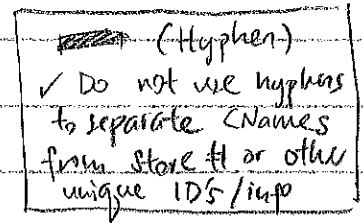 (Hyphen)
✓ Do not use hyphens
to separate CNames
from store # or other
unique ID's / info